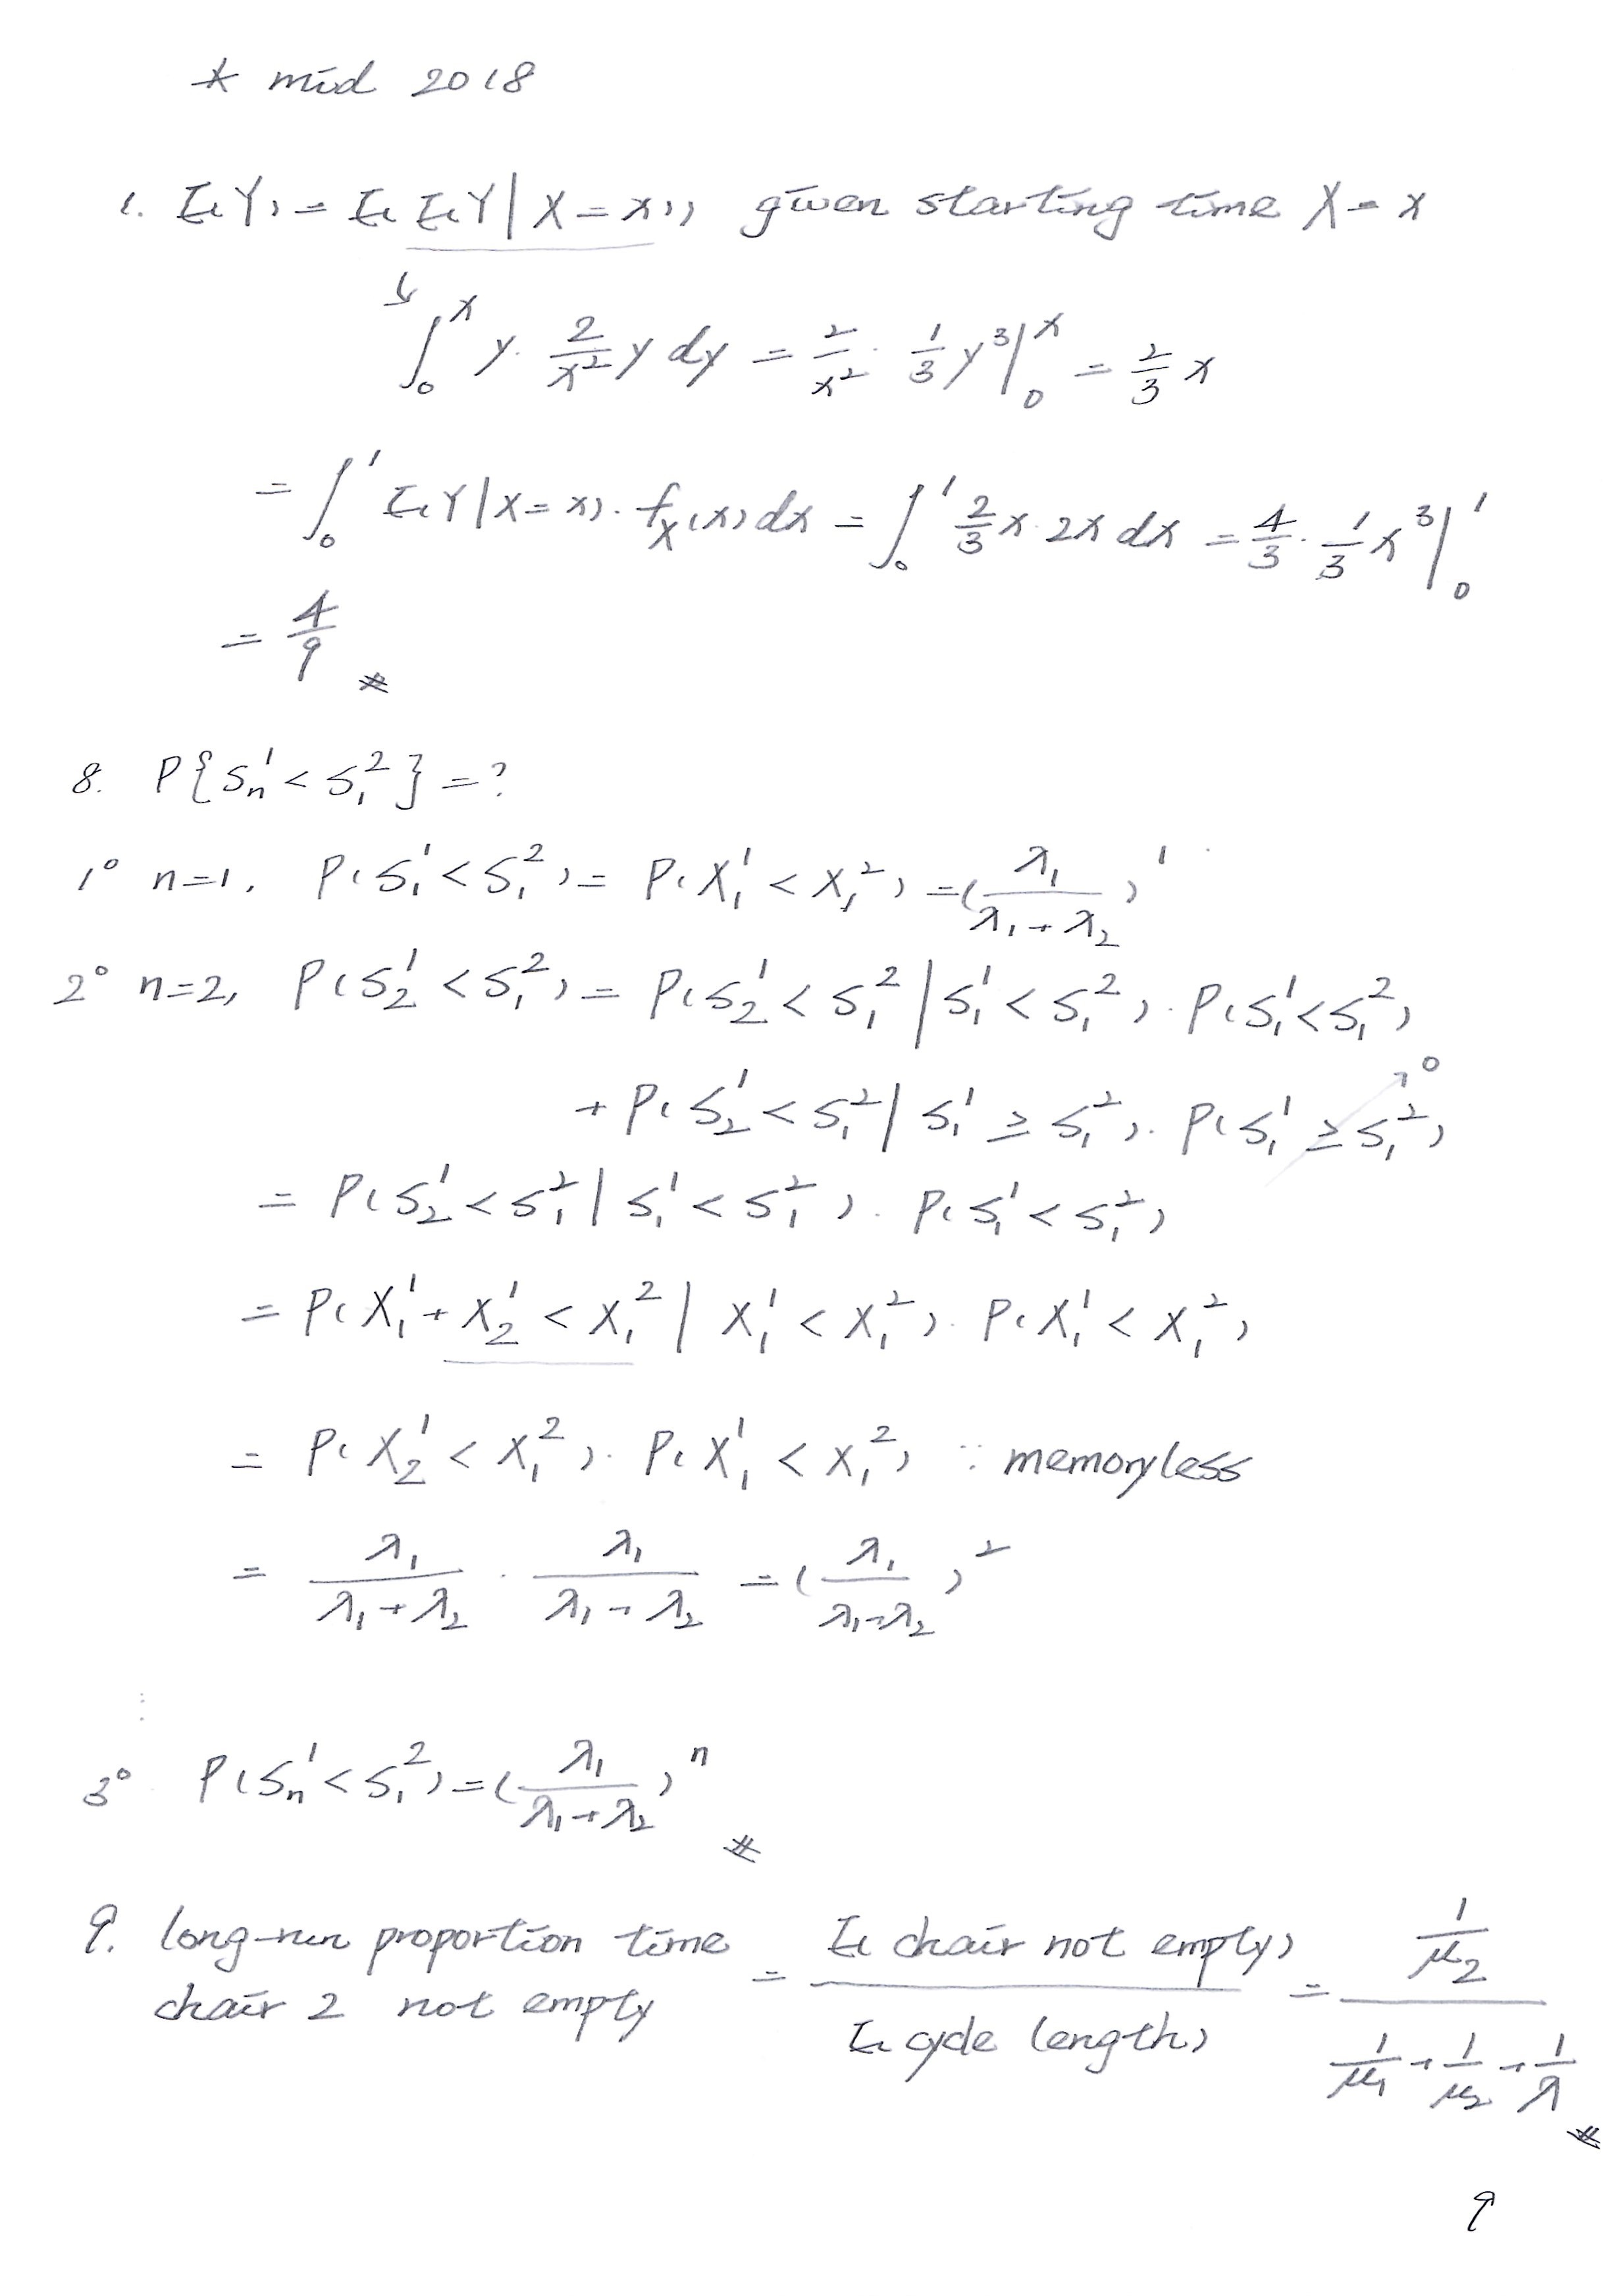 * mid 2018
1. E(Y) = E(E(Y|X=x)) given starting time X=x
↳ ∫₀ˣ y · 2/x² y dy = 2/x² · 1/3 y³|₀ˣ = 2/3 x
= ∫₀¹ E(Y|X=x) · f_X(x) dx = ∫₀¹ 2/3 x · 2x dx = 4/3 · 1/3 x³|₀¹
= 4/9 #
8. P{Sₙ¹ < S₁²} = ?
1° n=1, P(S₁¹ < S₁²) = P(X₁¹ < X₁²) = (λ₁/(λ₁+λ₂))¹
2° n=2, P(S₂¹ < S₁²) = P(S₂¹ < S₁² | S₁¹ < S₁²) · P(S₁¹ < S₁²)
+ P(S₂¹ < S₁² | S₁¹ ≥ S₁²) · P(S₁¹ ≥ S₁²) ↗0
= P(S₂¹ < S₁² | S₁¹ < S₁²) · P(S₁¹ < S₁²)
= P(X₁¹ + X₂¹ < X₁² | X₁¹ < X₁²) · P(X₁¹ < X₁²)
= P(X₂¹ < X₁²) · P(X₁¹ < X₁²) ∵ memoryless
= λ₁/(λ₁+λ₂) · λ₁/(λ₁+λ₂) = (λ₁/(λ₁+λ₂))²
⋮
3° P(Sₙ¹ < S₁²) = (λ₁/(λ₁+λ₂))ⁿ #
9. long-run proportion time chair 2 not empty = E(chair not empty)/E(cycle length) = (1/μ₂)/(1/μ₁ + 1/μ₂ + 1/λ) #
9